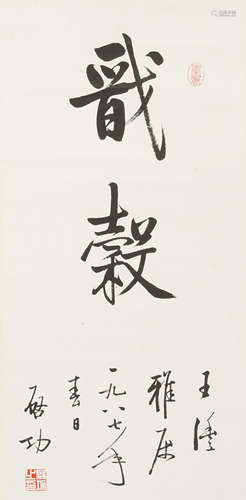 戩穀
王
雅属
一九八七年
春日
启功